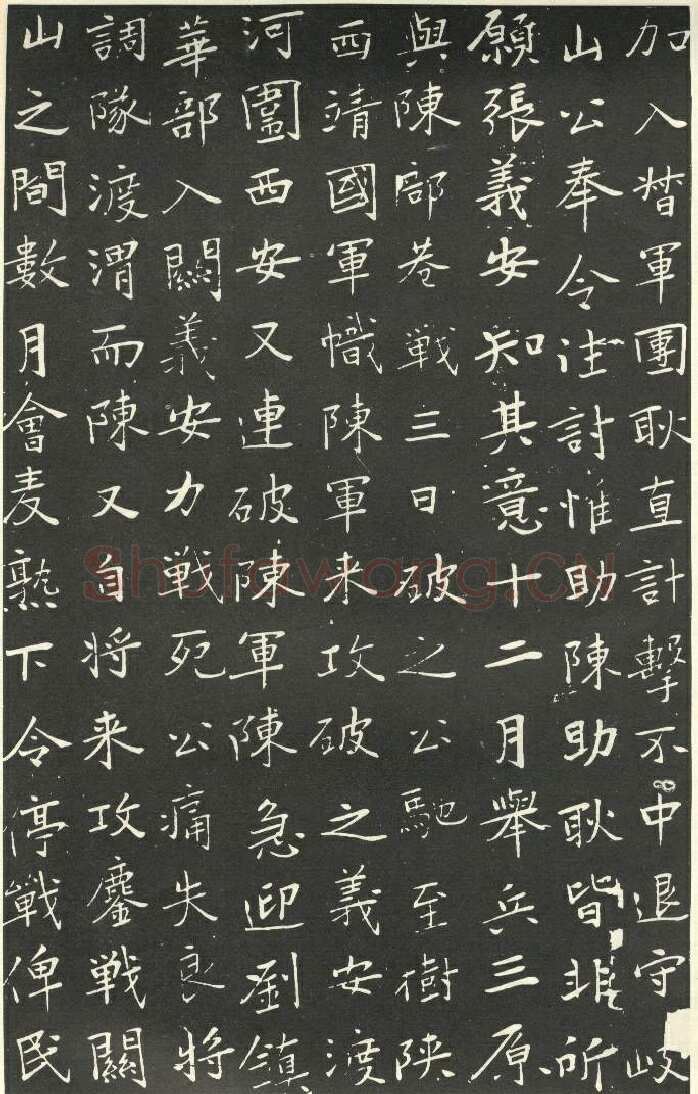 加入督軍團耿直計擊不中退守岐
山公奉令往討惟助陳助耿皆非所
願張義安知其意十二月舉兵三原
與陳部巷戰三日破之公馳至樹陝
西靖國軍幟陳軍来攻破之義安渡
河圍西安又連破陳軍陳急迎劉鎮
華部入關義安力戰死公痛失良將
調隊渡渭而陳又自將来攻鏖戰關
山之間數月會麦熟下令停戰俾民
Shufawang.CN